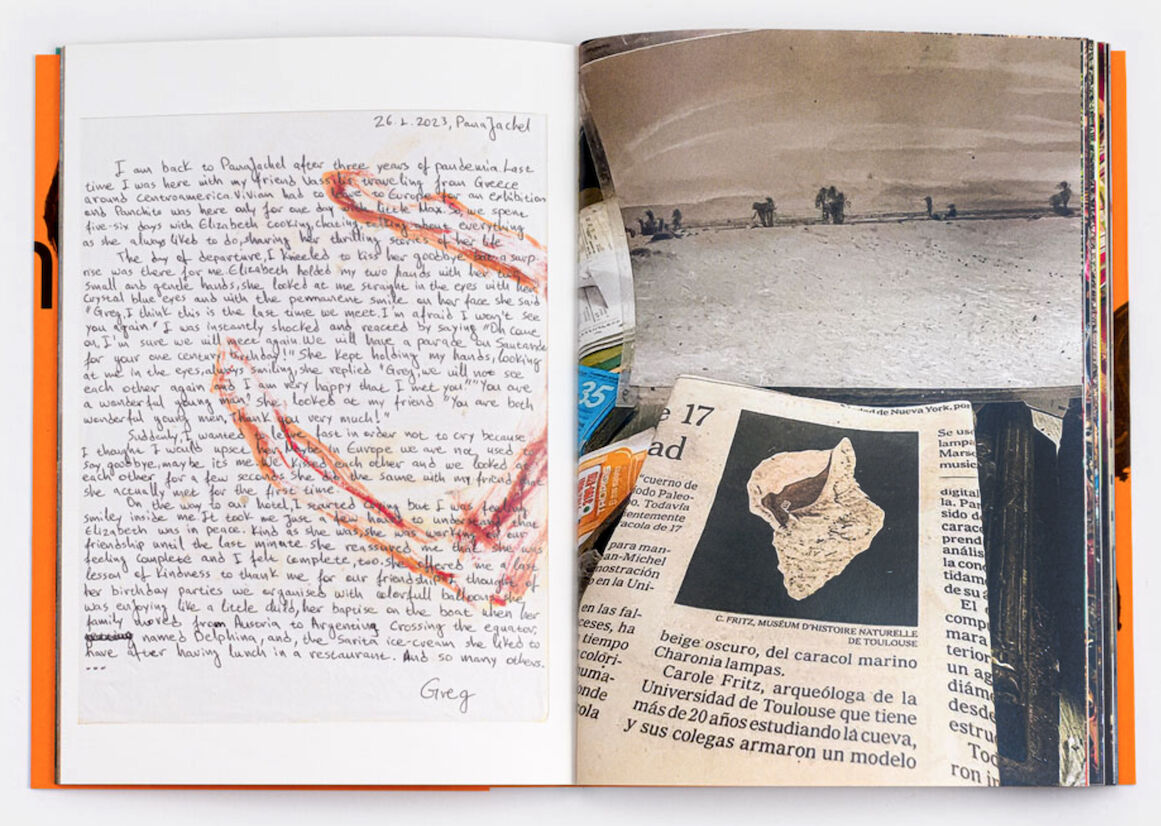 26.1.2023, PanaJachel
I am back to PanaJachel after three years of pandemia. Last
time I was here with my friend Vassilis traveling from Greece
around Centroamerica. Vivian had to leave to Europe for an exhibition
and Panchito was here only for one day with little Max. So, we spent
five-six days with Elizabeth cooking, chating, talking about everything
as she always liked to do, sharing her thrilling stories of her life
The day of departure, I kneeled to kiss her goodbye but a surp
rise was there for me. Elizabeth holded my two hands with her tiny
small and gentle hands, she looked at me straight in the eyes with her
crystal blue eyes and with the permanent smile on her face she said
"Greg, I think this is the last time we meet. I'm afraid I won't see
you again." I was instantly shocked and reacted by saying "Oh come
on, I'm sure we will meet again. We will have a parade on Santander
for your one century birthday!" She kept holding my hands, looking
at me in the eyes, always smiling, she replied "Greg, we will not see
each other again and I am very happy that I met you" "You are
a wonderful young man" She looked at my friend "You are both
wonderful young men, thank you very much!"
Suddenly, I wanted to leave fast in order not to cry because
I thought I would upset her. Maybe in Europe we are not used to
say goodbye, maybe its me. We kissed each other and we looked at
each other for a few seconds. She did the same with my friend that
she actually met for the first time.
On the way to our hotel, I started crying but I was feeling
smiley inside me. It took me just a few hours to understand that
Elizabeth was in peace. Kind as she was, she was working on our
friendship until the last minute. She reassured me that she was
feeling complete and I felt complete, too. She offered me a last
lesson of kindness to thank me for our friendship. I thought of
her birthday parties we organised with colorfull balloons she
was enjoying like a little child, her baptise on the boat when her
family moved from Austria to Argentina crossing the equator,
named Delphina, and, the Sarita ice-cream she liked to
have after having lunch in a restaurant. And so many others.
...
Greg
35
e 17
ad
dad de Nueva York, por
"cuerno de
íodo Paleo-
o. Todavía
entemente
acola de 17
para man-
an-Michel
mostración
o en la Uni-
en las fal-
ceses, ha
tiempo
colori-
uma-
onde
ola
C. FRITZ, MUSÉUM D'HISTOIRE NATURELLE
DE TOULOUSE
beige oscuro, del caracol marino
Charonia lampas.
Carole Fritz, arqueóloga de la
Universidad de Toulouse que tiene
más de 20 años estudiando la cueva,
y sus colegas armaron un modelo
Se us
lampa
Mars
music
digital
la. Par
sido d
carac
prend
anális
la con
tidam
de su
El
comp
mara
terior
un ag
diám
desde
estru
Tod
ron ir